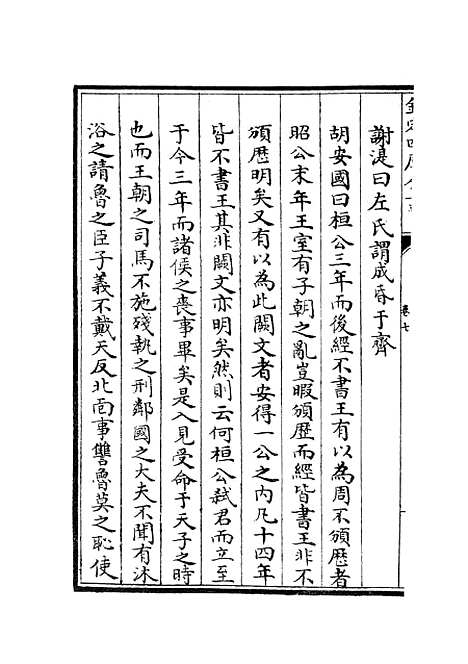 欽定四庫全書
卷七
謝湜曰左氏謂成昏于齊
胡安國曰桓公三年而後經不書王有以為周不頒歴者
昭公末年王室有子朝之亂豈暇頒歴而經皆書王非不
頒歴明矣又有以為此闕文者安得一公之内凡十四年
皆不書王其非闕文亦明矣然則云何桓公弑君而立至
于今三年而諸侯之喪事畢矣是入見受命于天子之時
也而王朝之司馬不施殘執之刑鄰國之大夫不聞有沐
浴之請魯之臣子義不戴天反北靣事讐魯莫之恥使